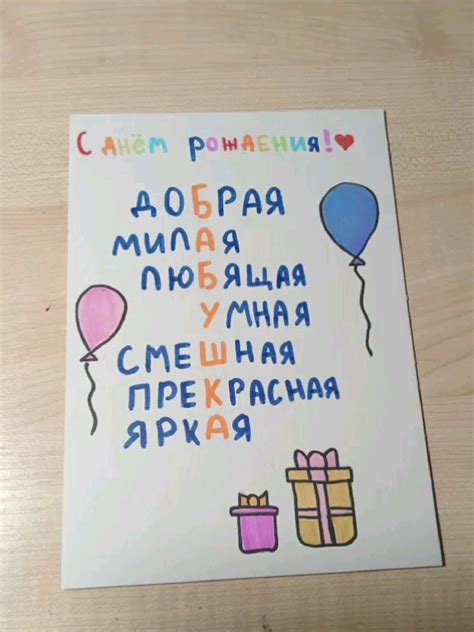 С днём рождения!
ДОБРАЯ
МИЛАЯ
ЛЮБЯЩАЯ
УМНАЯ
СМЕШНАЯ
ПРЕКРАСНАЯ
ЯРКАЯ